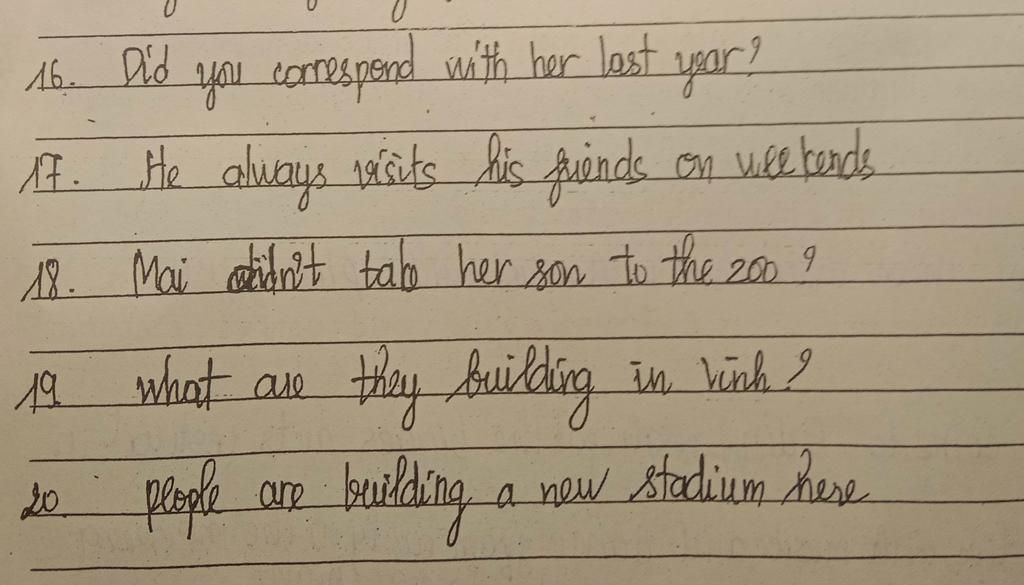 16. Did you correspond with her last year?
17. He always visits his friends on weekends
18. Mai didn't take her son to the zoo?
19 what are they building in Vinh?
20. people are building a new stadium here